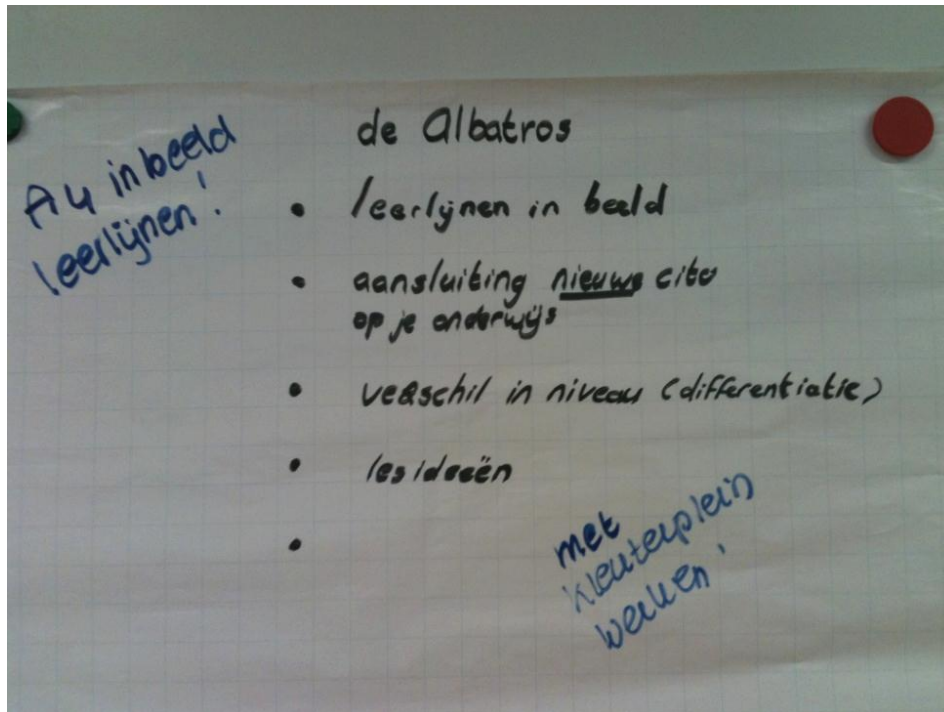 de Albatros
A4 in beeld
leerlijnen!
• leerlijnen in beeld
• aansluiting nieuwe cito
op je onderwijs
• verschil in niveau (differentiatie)
• lesideeën
•
met
kleuterplein
werken!